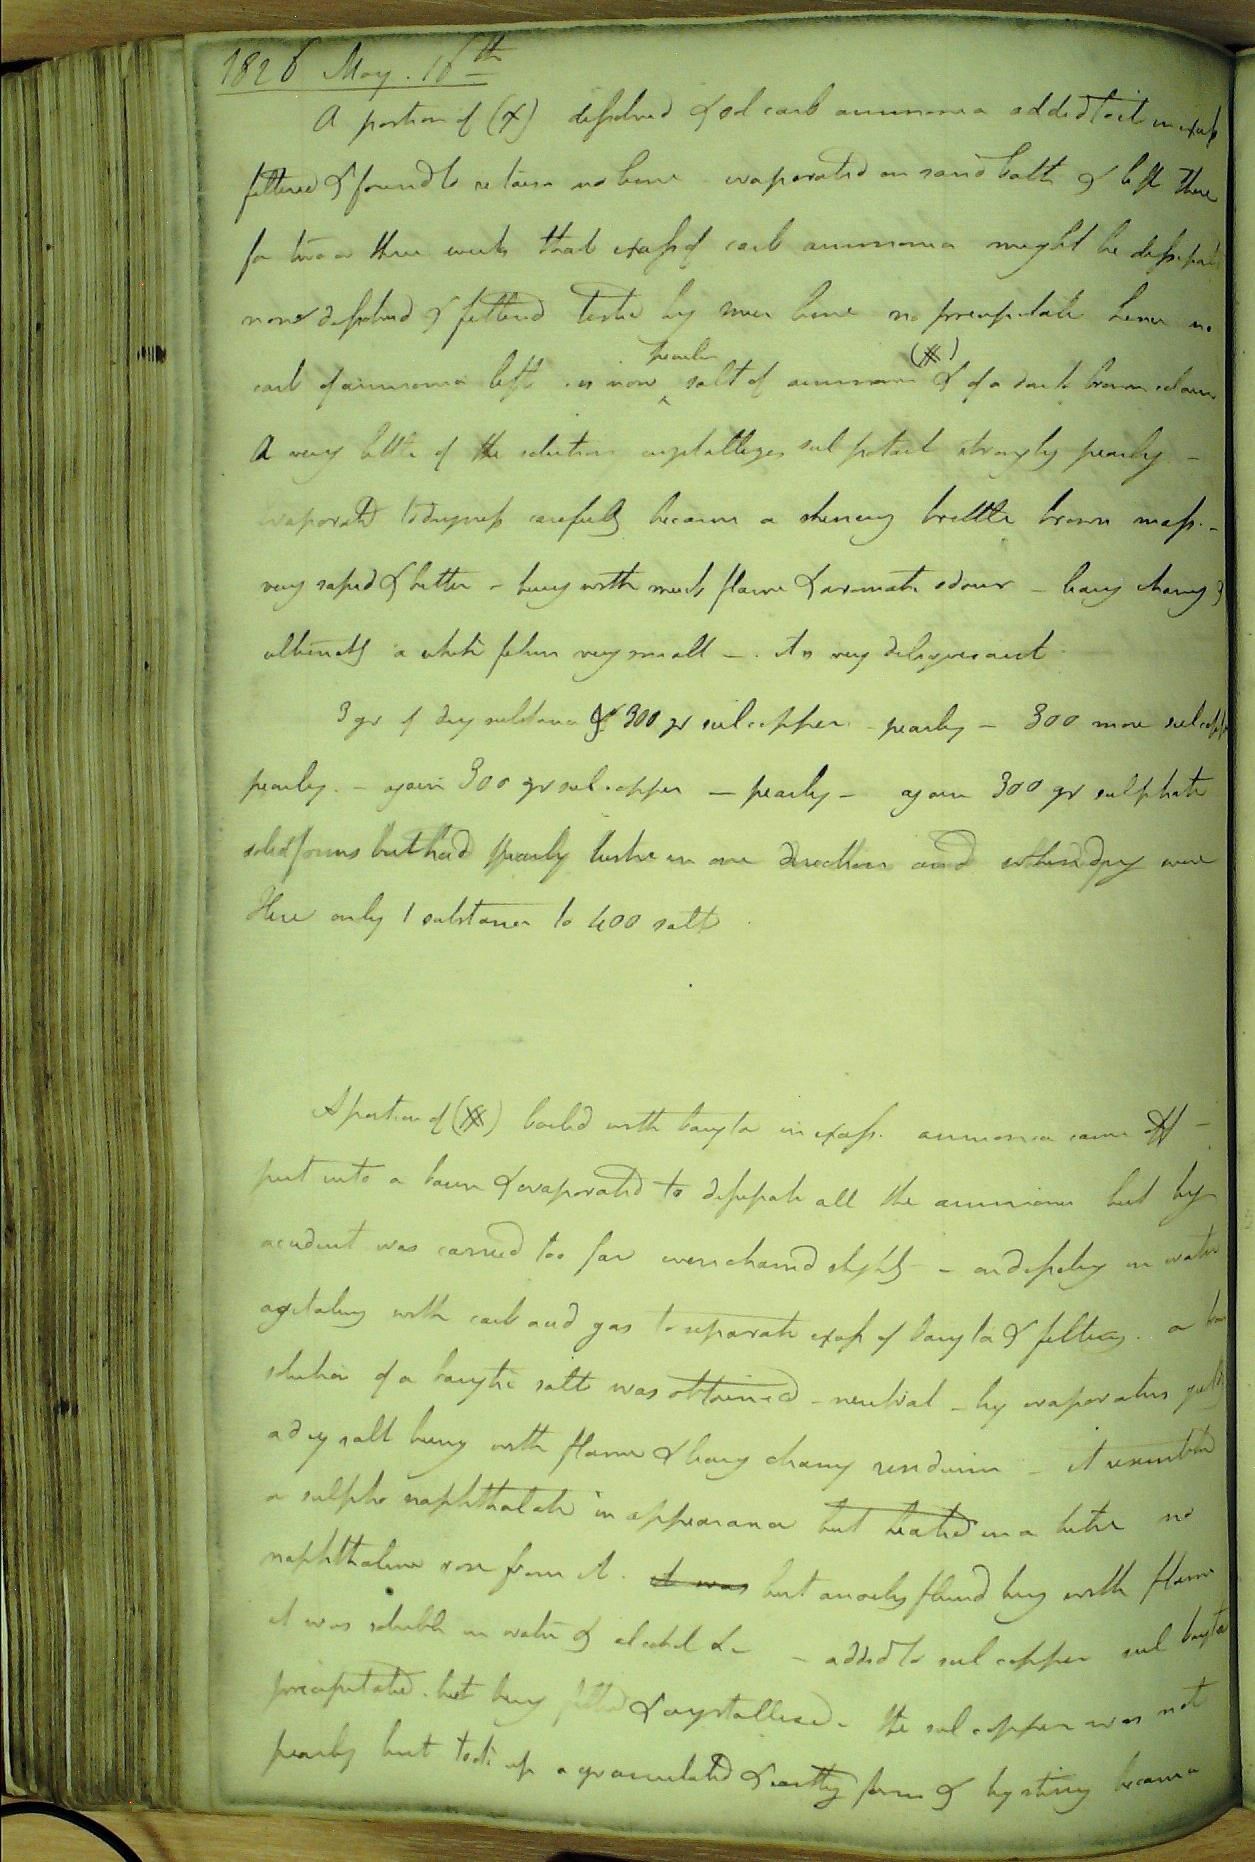 1826 May. 16th
A portion of (X) dissolved & sol carb ammonia added to it in excess
filtered & found to retain no lime evaporated on sand bath & left there
for two or three weeks that excess of carb ammonia might be dissipated
now dissolved & filtered tested by mur lime no precipitate hence no
carb of ammonia left is now pearlin salt of ammonia (XX) & of a dark brown colour
A very little of the solution crystallizes sul potash strongly pearly -
evaporated to dryness carefully became a shining brittle brown mass. -
very sapid & bitter - burns with much flame & aromatic odour - leaving charcoal &
ultimately a white film very small - . it is very deliquescent
3 gr of dry substance & 300 gr sul copper - pearly - 300 more sul copper
pearly. - again 300 gr sul copper - pearly - again 300 gr sulphate
solid forms but had pearly lustre in one direction and when dry were
Here only 1 substance to 400 salt
A portion of (XX) boiled with baryta in excess. ammonia came off -
put into a basin & evaporated to dissipate all the ammonia but by
accident was carried too far even charred slightly - on dissolving in water
agitating with carb acid gas to separate excess of baryta & filtering. a
solution of a barytic salt was obtained - neutral - by evaporation
a dry salt burning with flame & leaving charry residuum - it resembled
a sulpho naphthalate in appearance but heated in a tube no
naphthaline rose from it. it was but an oily fluid burning with flame
it was soluble in water & alcohol &c - added to sul copper sul baryta
precipitated. but being filtered & crystallised - the sul copper was not
pearly but took up a granulated & earthy form & by stirring became